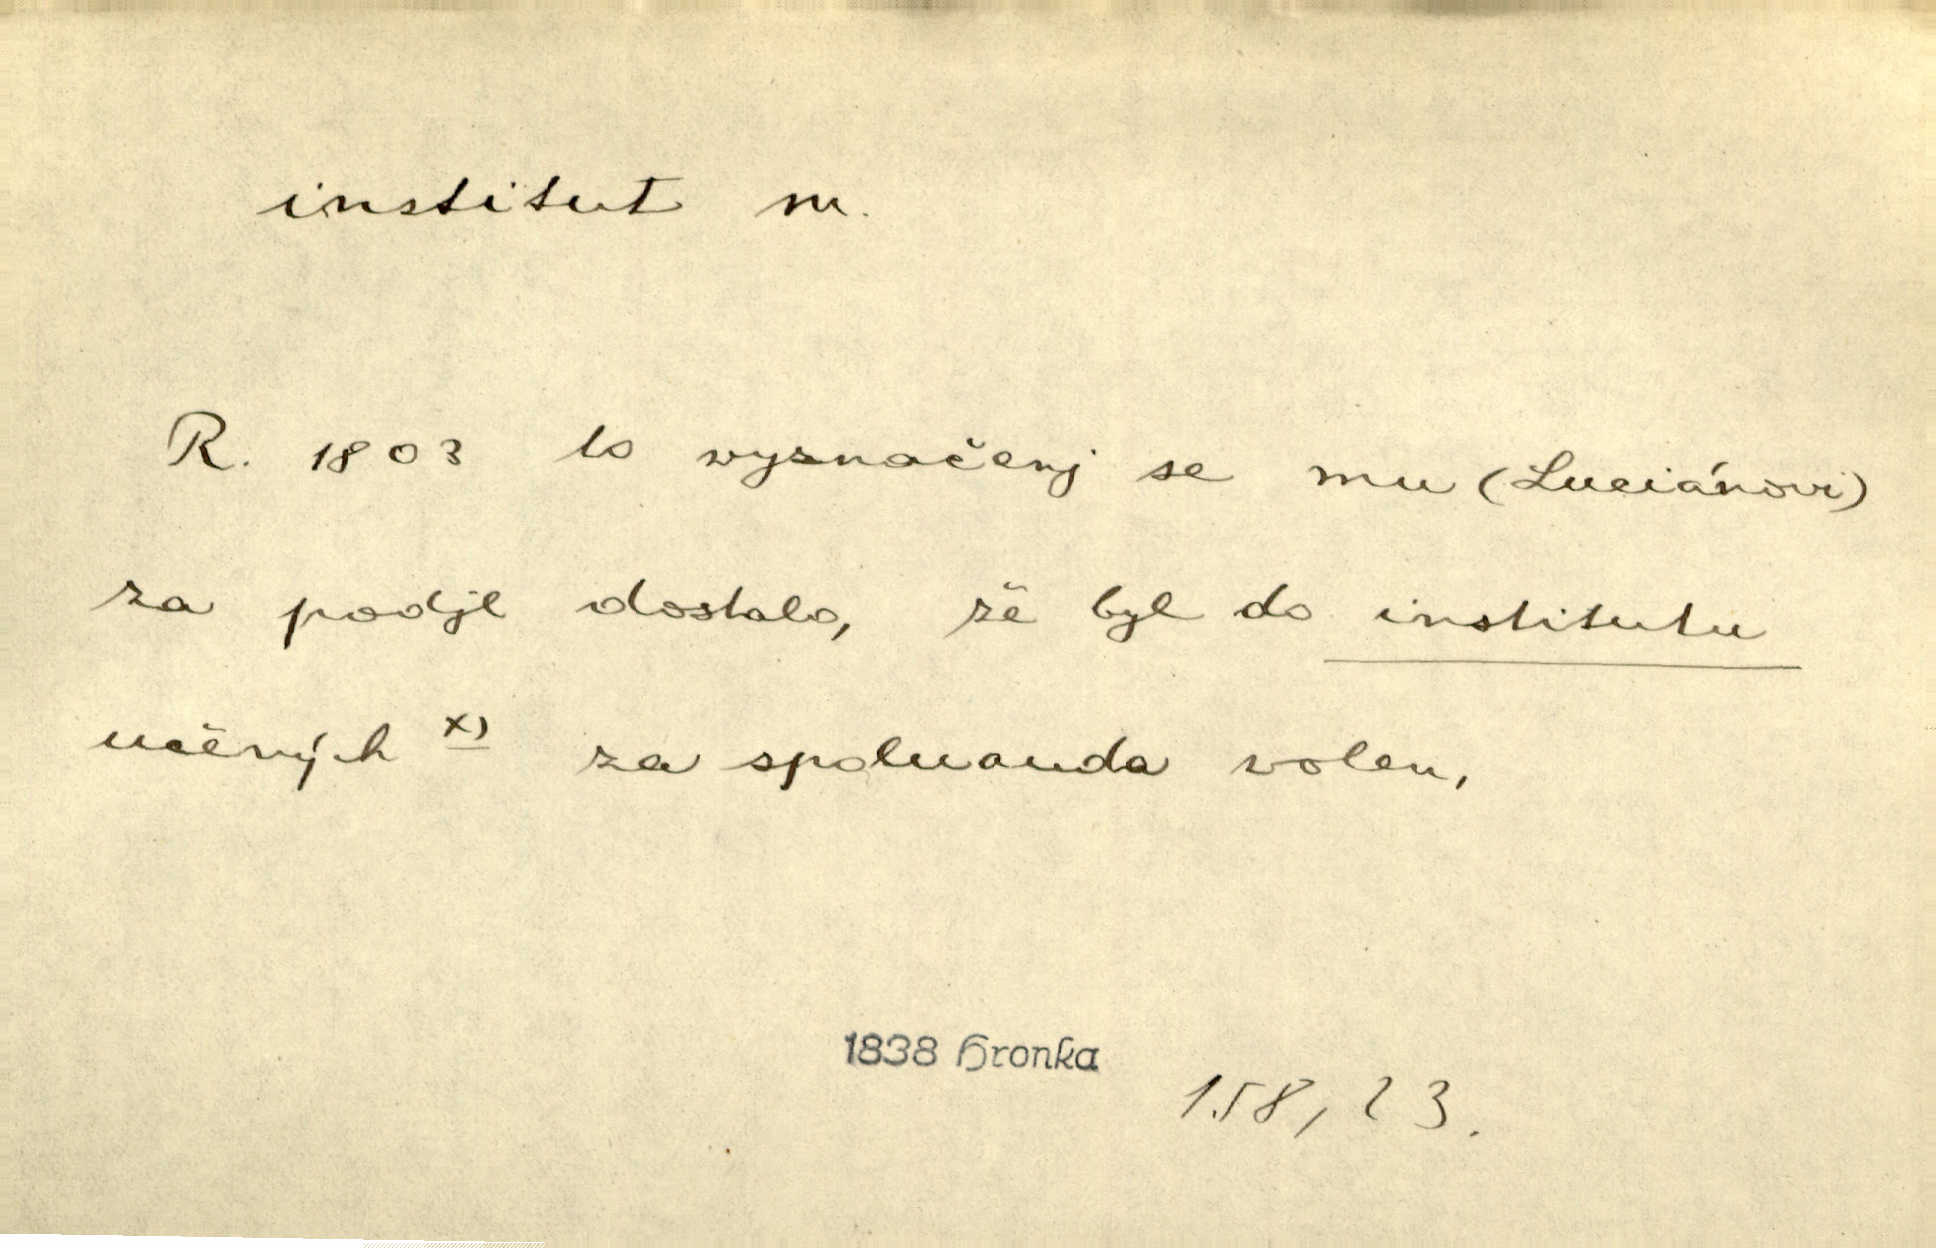 institut m.
R. 1803 to wyznačenj se mu (Luciánovi)
za podjl dostalo, že byl do institutu
učených x) za spoluauda volen,
1838 Hronka
158, 23.